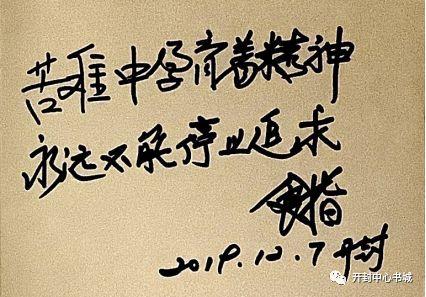 苦难中孕育着精神
永远不能停止追求
食指
2019.12.7 开封
开封中心书城